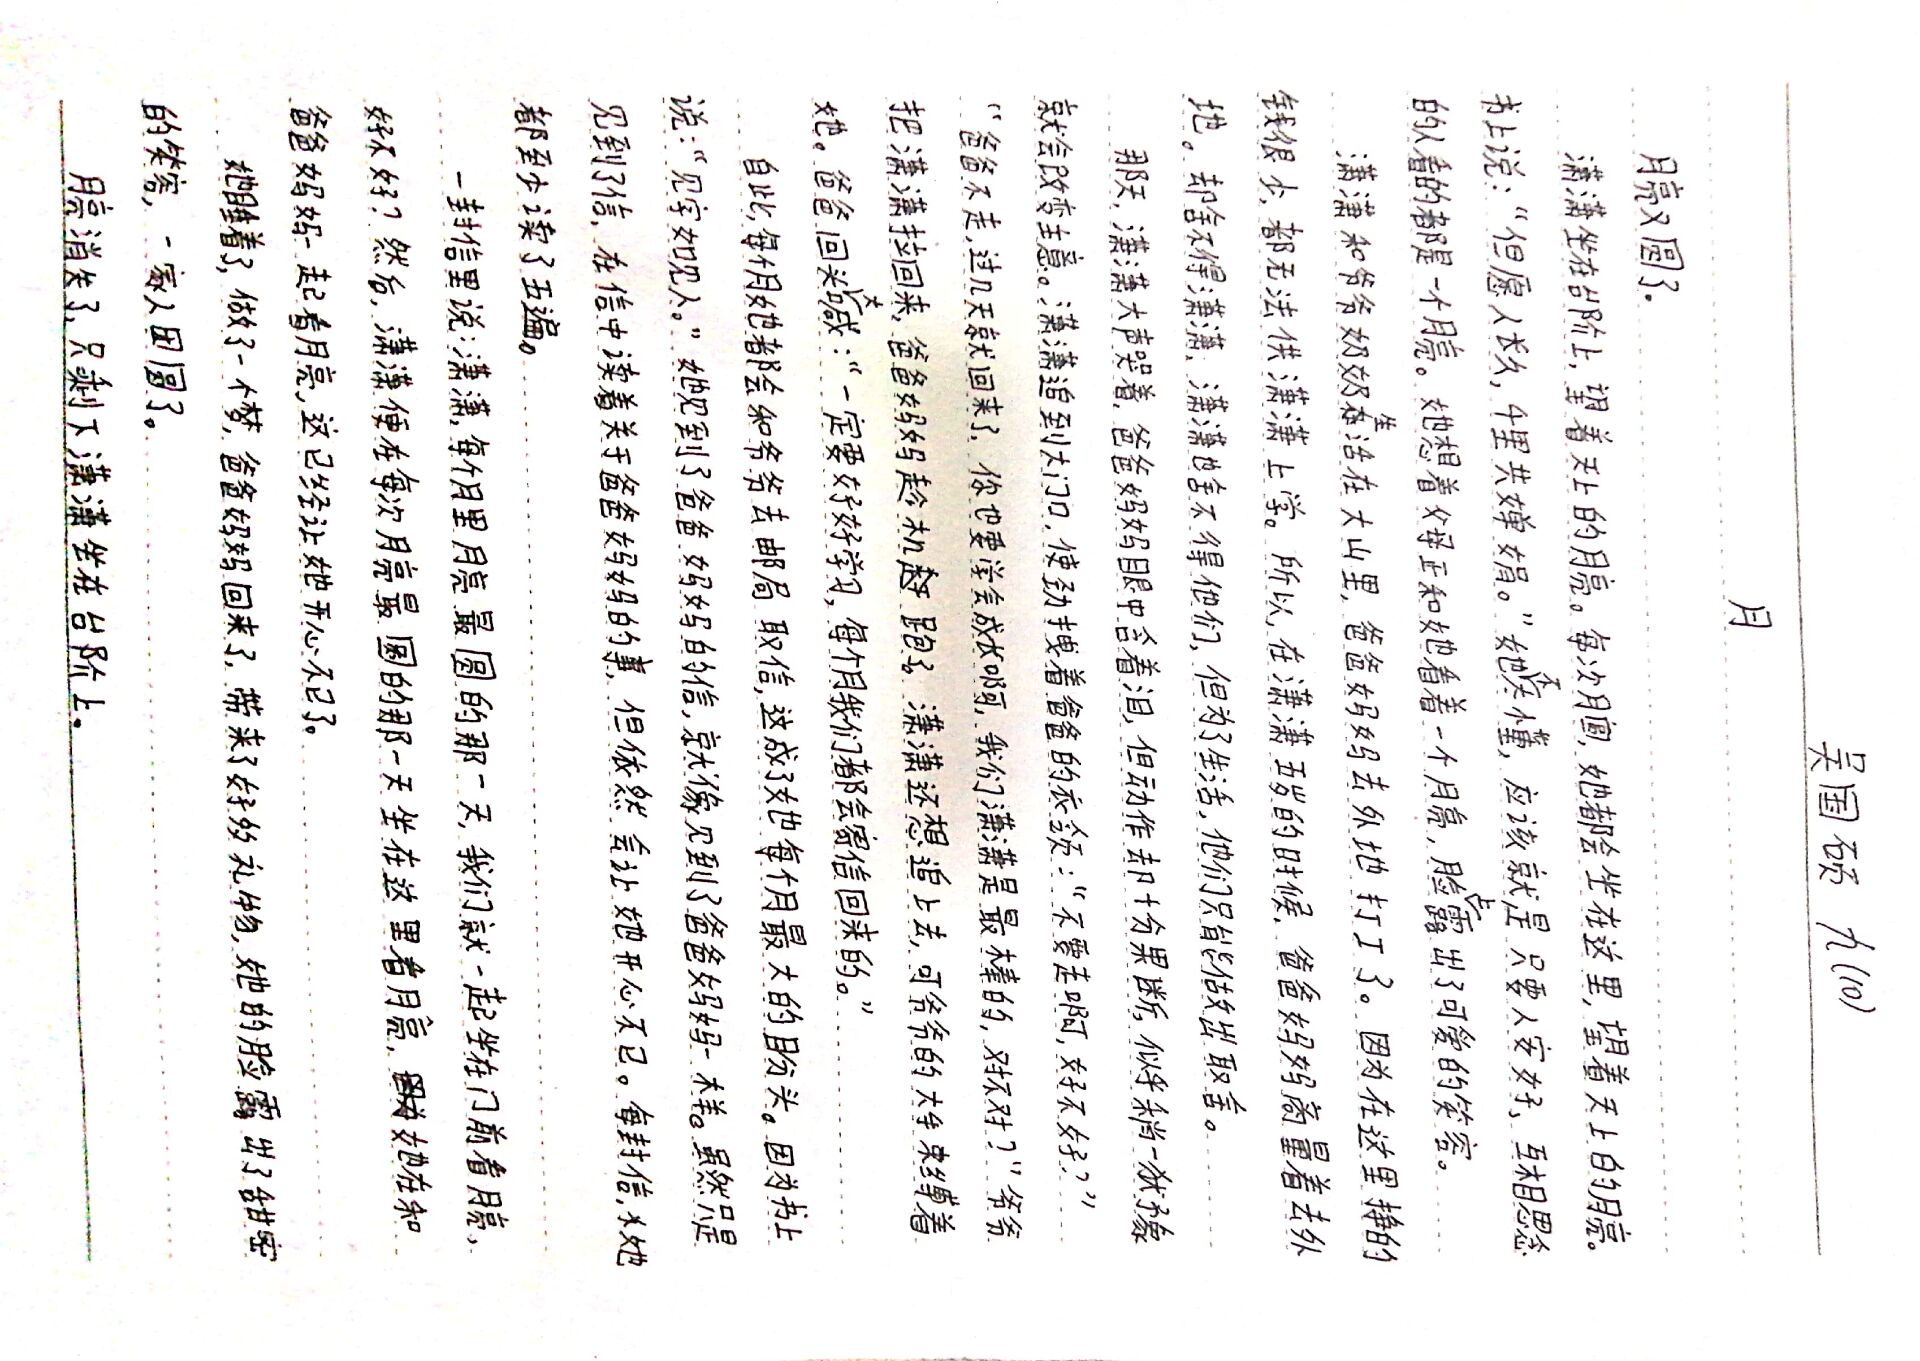 吴国硕 九(10)
月
月亮又圆了。
潇潇坐在台阶上,望着天上的月亮。每次月圆,她都会坐在这里,望着天上的月亮。
书上说:“但愿人长久,千里共婵娟。”她不懂,应该就是只要人安好、互相思念
的人看的都是一个月亮。她想着父母正和她看着一个月亮,脸上露出了可爱的笑容。
潇潇和爷爷奶奶生活在大山里,爸爸妈妈去外地打工了。因为在这里挣的
钱很少,都无法供潇潇上学。所以,在潇潇五岁的时候,爸爸妈妈商量着去外
地。却舍不得潇潇,潇潇也舍不得他们,但为了生活,他们只能做出取舍。
那天,潇潇大声哭着,爸爸妈妈眼中含着泪,但动作却十分果断,似乎稍一犹豫
就会改变主意。潇潇追到大门口,使劲拽着爸爸的衣领:“不要走啊,好不好?”
“爸爸不走,过几天就回来了,你也要学会成长啊,我们潇潇是最棒的,对不对?”爷爷
把潇潇拉回来,爸爸妈妈趁机跑了,潇潇还想追上去,可爷爷的大手束缚着
她。爸爸回头喊:“一定要好好学习,每个月我们都会寄信回来的。”
自此,每个月她都会和爷爷去邮局取信,这成了她每个月最大的盼头。因为书上
说:“见字如见人。”她见到了爸爸妈妈的信,就像见到了爸爸妈妈一样。虽然只是
见到了信,在信中读着关于爸爸妈妈的事,但依然会让她开心不已。每封信,她
都至少读了五遍。
一封信里说:潇潇,每个月里月亮最圆的那一天,我们就一起坐在门前看月亮,
好不好?然后,潇潇便在每次月亮最圆的那一天坐在这里看月亮,她在和
爸爸妈妈一起看月亮,这已经让她开心不已了。
她睡着了,做了一个梦,爸爸妈妈回来了,带来了好多礼物,她的脸露出了甜蜜
的笑容,一家人团圆了。
月亮消失了,只剩下潇潇坐在台阶上。